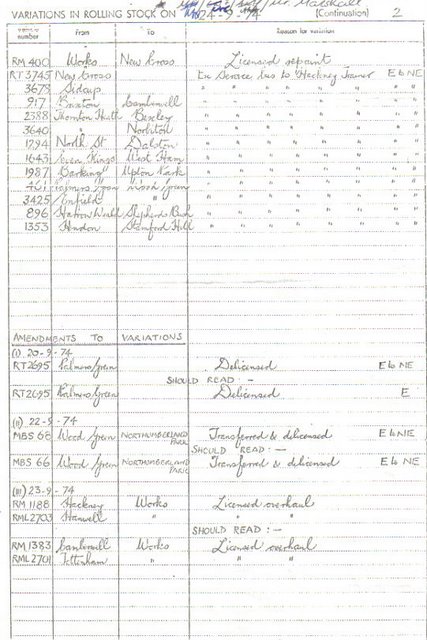 Marshall
VARIATIONS IN ROLLING STOCK ON 24-9-74 (Continuation) 2
number From To Reason for variation
RM 400 Works New Cross Licensed repaint
RT 3745 New Cross Ex Service bus to Hackney Trainer E to NE
3678 Sidcup " " " " " " "
917 Brixton Camberwell " " " " " " "
2388 Thornton Heath Bexley " " " " " " "
3640 " Norbiton " " " " " " "
1794 North St Dalston " " " " " " "
1643 Seven Kings West Ham " " " " " " "
1987 Barking Upton Park " " " " " " "
461 Palmers Green Wood Green " " " " " " "
3425 Enfield " " " " " " " "
896 Harrow Weald Shepherds Bush " " " " " " "
1353 Hendon Stamford Hill " " " " " " "
AMENDMENTS TO VARIATIONS
(i) 20-9-74
RT2695 Palmers Green Delicensed E to NE
SHOULD READ :-
RT2695 Palmers Green Delicensed E
(ii) 22-9-74
MBS 68 Wood Green NORTHUMBERLAND PARK Transferred & delicensed E to NE
SHOULD READ :-
MBS 66 Wood Green NORTHUMBERLAND PARK Transferred & delicensed E to NE
(iii) 23-9-74
RM 1188 Hackney Works Licensed overhaul
RML 2703 Hanwell " " "
SHOULD READ :-
RM 1383 Camberwell Works Licensed overhaul
RML 2701 Tottenham " " "